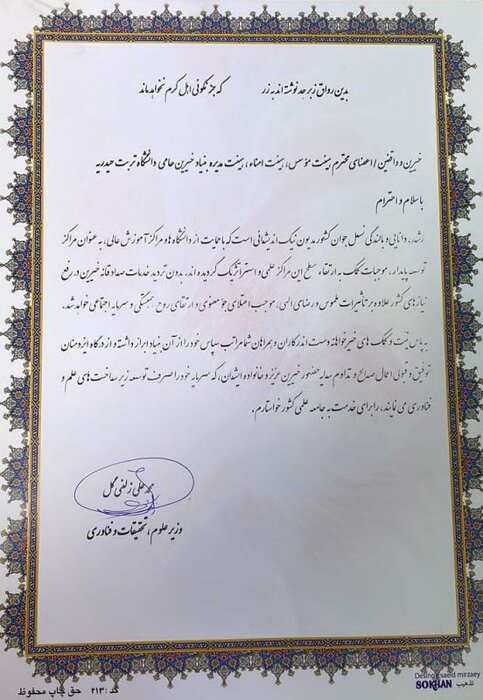 بدین رواق زبرجد نوشته اند به زر که جز نکویی اهل کرم نخواهد ماند
خیرین و واقفین / اعضای محترم هیئت مؤسس، هیئت امناء، هیئت مدیره بنیاد خیرین حامی دانشگاه تربت حیدریه
با سلام و احترام
رشد، دانایی و بالندگی نسل جوان کشور مدیون نیک اندیشانی است که با حمایت از دانشگاه ها و مراکز آموزش عالی، به عنوان مراکز
توسعه پایدار، موجبات کمک به ارتقاء سطح این مراکز علمی و استراتژیک گردیده اند. بدون تردید خدمات صادقانه خیرین در رفع
نیازهای کشور علاوه بر تأثیرات ملموس و رضای الهی، موجب اعتلای جو معنوی و ارتقای روح همبستگی و سرمایه اجتماعی خواهد شد.
به پاس نیت و کمک های خیرخواهانه دست اندرکاران و همراهان شما مراتب سپاس خود را از آن بنیاد ابراز داشته و از درگاه ایزد منان
توفیق و قبولی اعمال صالح و تداوم سایه حضور خیرین عزیز و خانواده ایشان، که سرمایه خود را صرف توسعه زیرساخت های علم و
فناوری می نمایند، را برای خدمت به جامعه علمی کشور خواستارم.
محمد علی زلفی گل
وزیر علوم، تحقیقات و فناوری
Desing: saeid mirzaey
تذهیب SOKHAN
کد: ۲۱۳ حق چاپ محفوظ